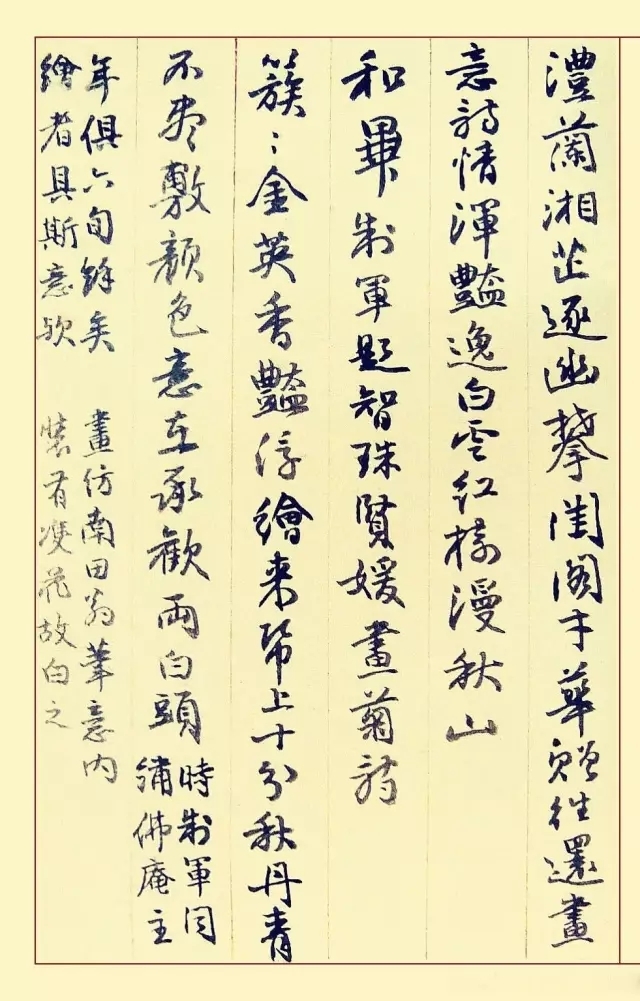 澧蘭湘芷逐幽攀閨閣才華贈往還畫
意詩情渾豔逸白雲紅樹漫秋山
和畢制軍題智珠賢媛畫菊詩
簇〻金英香豔浮繪來帋上十分秋丹青
不盡敷顏色意在承歡兩白頭
時制軍同
繡佛庵主
年俱六旬餘矣
繪者具斯意歟
畫仿南田翁筆意內
裝有雙花故白之